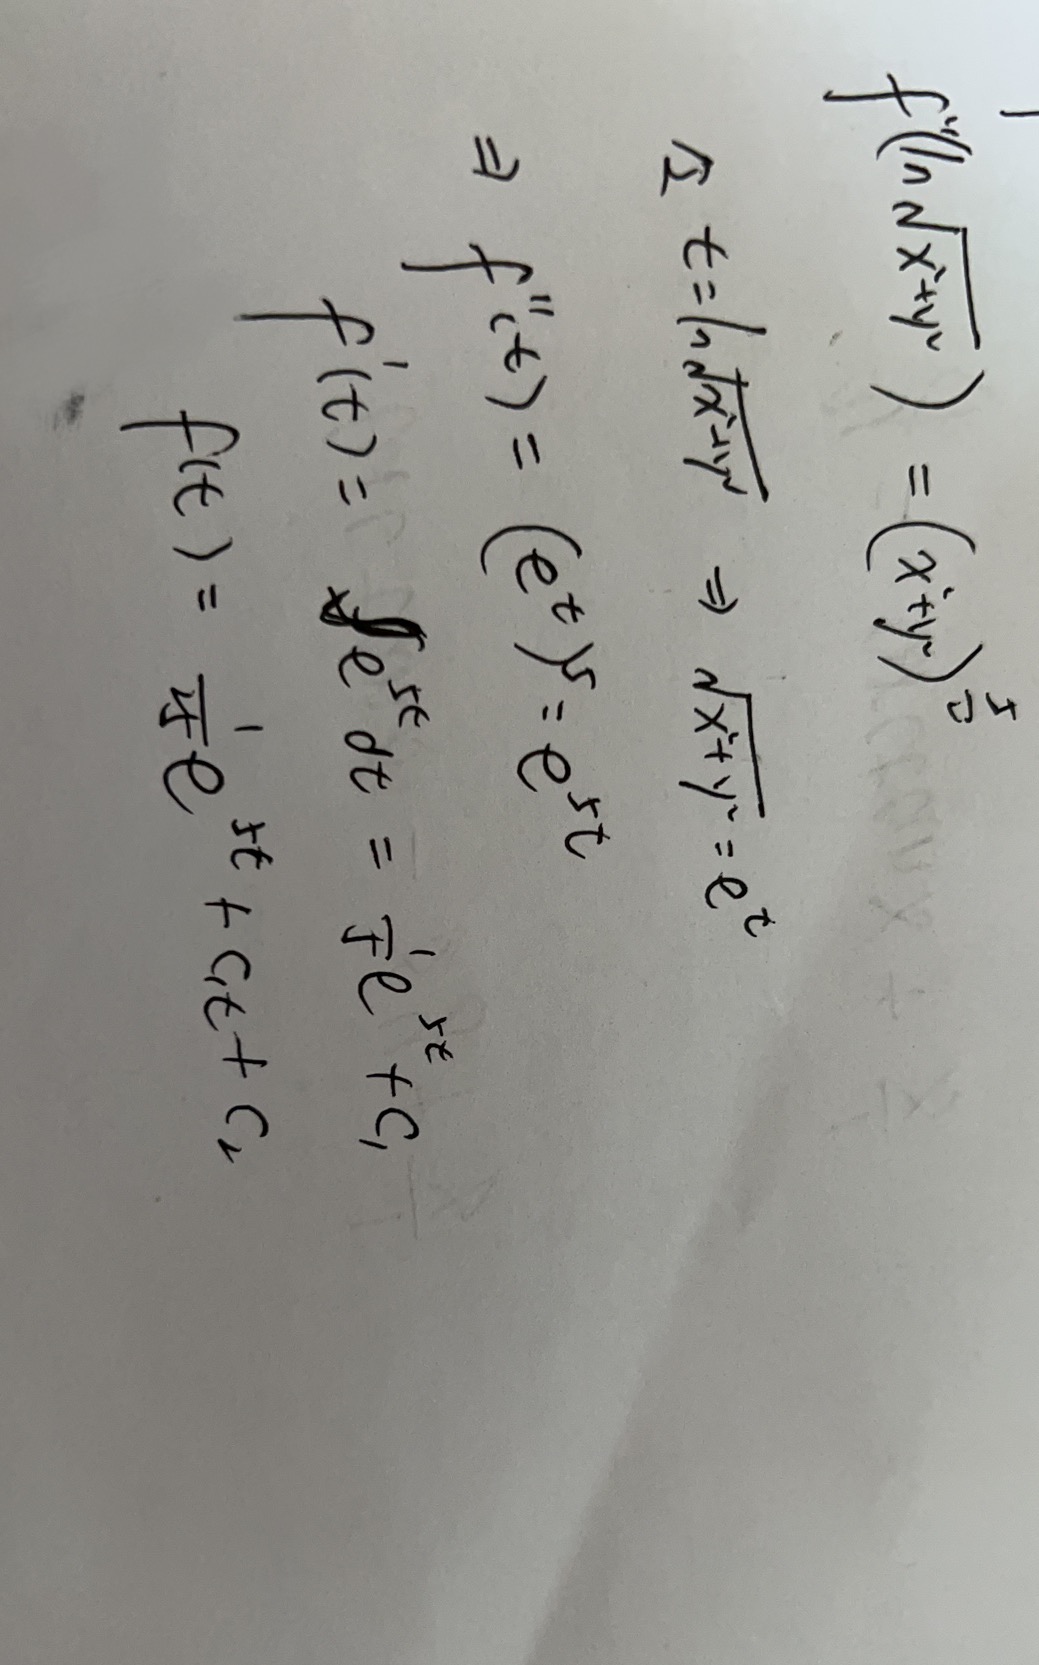 f''(ln√(x²+y²)) = (x²+y²)^(5/2)
令 t=ln√(x²+y²) ⇒ √(x²+y²) = e^t
⇒ f''(t) = (e^t)^5 = e^(5t)
f'(t) = ∫e^(5t) dt = 1/5 e^(5t) + C₁
f(t) = 1/25 e^(5t) + C₁t + C₂